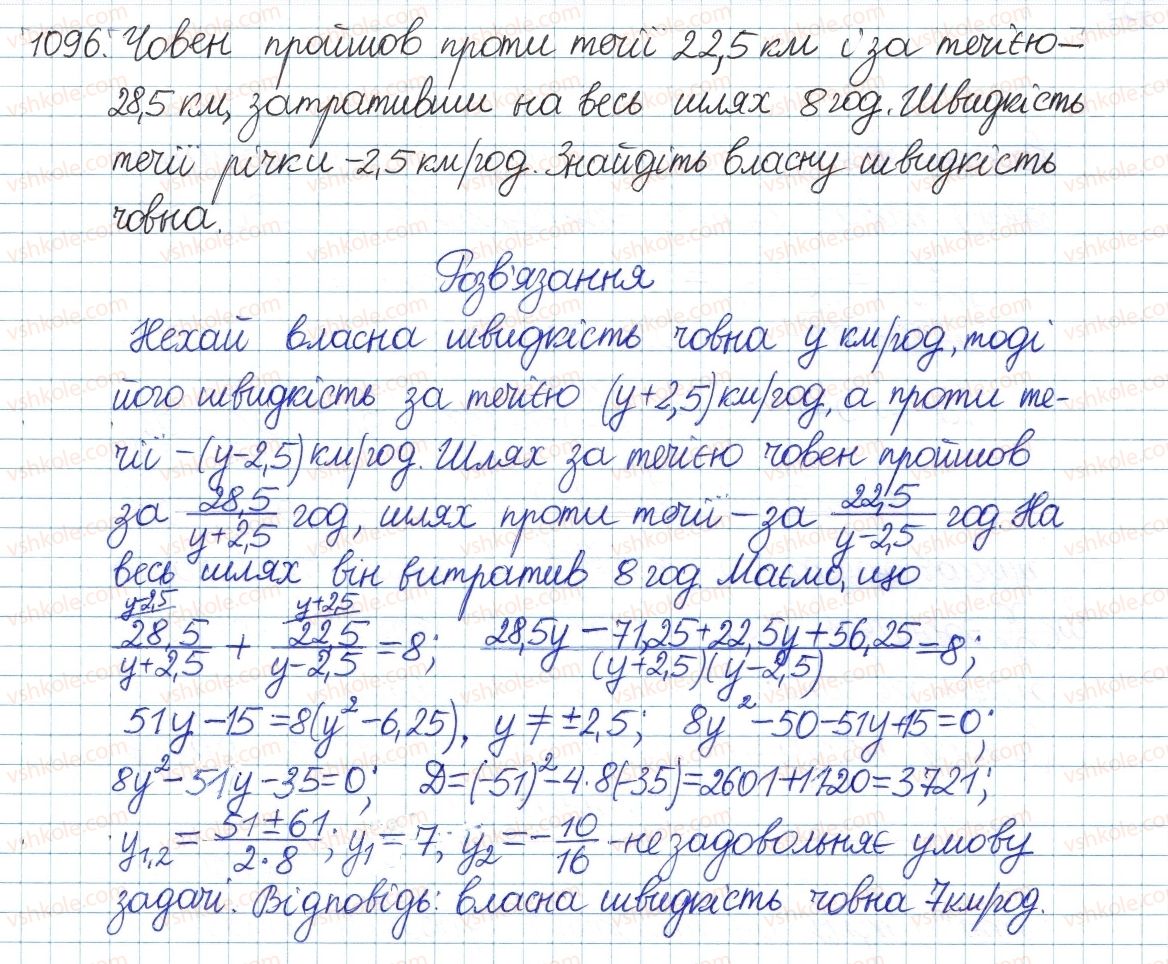 1096. Човен пройшов проти течії 22,5 км і за течією –
28,5 км, затративши на весь шлях 8 год. Швидкість
течії річки – 2,5 км/год. Знайдіть власну швидкість
човна.
Розв'язання
Нехай власна швидкість човна y км/год, тоді
його швидкість за течією (y+2,5) км/год, а проти те-
чії – (y-2,5) км/год. Шлях за течією човен пройшов
за 28,5/(y+2,5) год, шлях проти течії – за 22,5/(y-2,5) год. На
весь шлях він витратив 8 год. Маємо, що
y-2,5 y+2,5
28,5/(y+2,5) + 22,5/(y-2,5) = 8; (28,5y - 71,25 + 22,5y + 56,25)/((y+2,5)(y-2,5)) = 8;
51y - 15 = 8(y² - 6,25), y ≠ ±2,5; 8y² - 50 - 51y + 15 = 0;
8y² - 51y - 35 = 0; D = (-51)² - 4·8(-35) = 2601 + 1120 = 3721;
y₁,₂ = (51 ± 61)/(2·8); y₁ = 7; y₂ = -10/16 - не задовольняє умову
задачі. Відповідь: власна швидкість човна 7 км/год.
vshkole.com